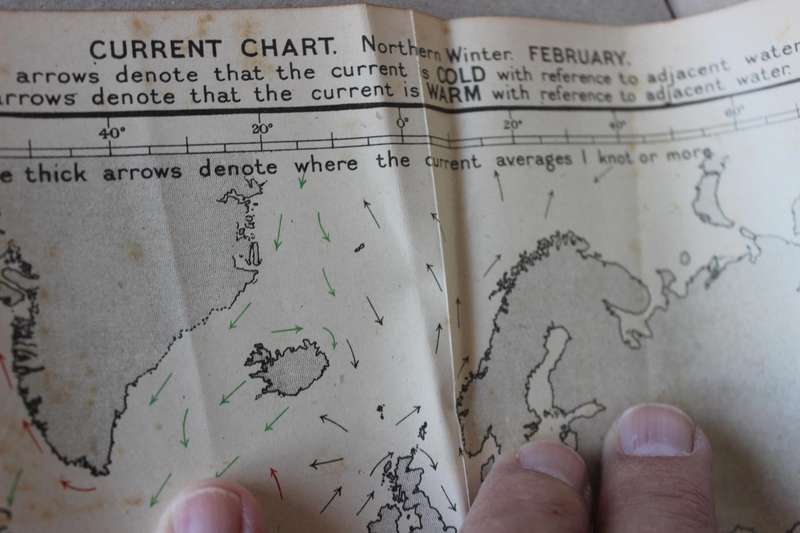 CURRENT CHART. Northern Winter. FEBRUARY.
arrows denote that the current is COLD with reference to adjacent water
arrows denote that the current is WARM with reference to adjacent water.
40° 20° 0° 20° 40° 60°
e thick arrows denote where the current averages 1 knot or more